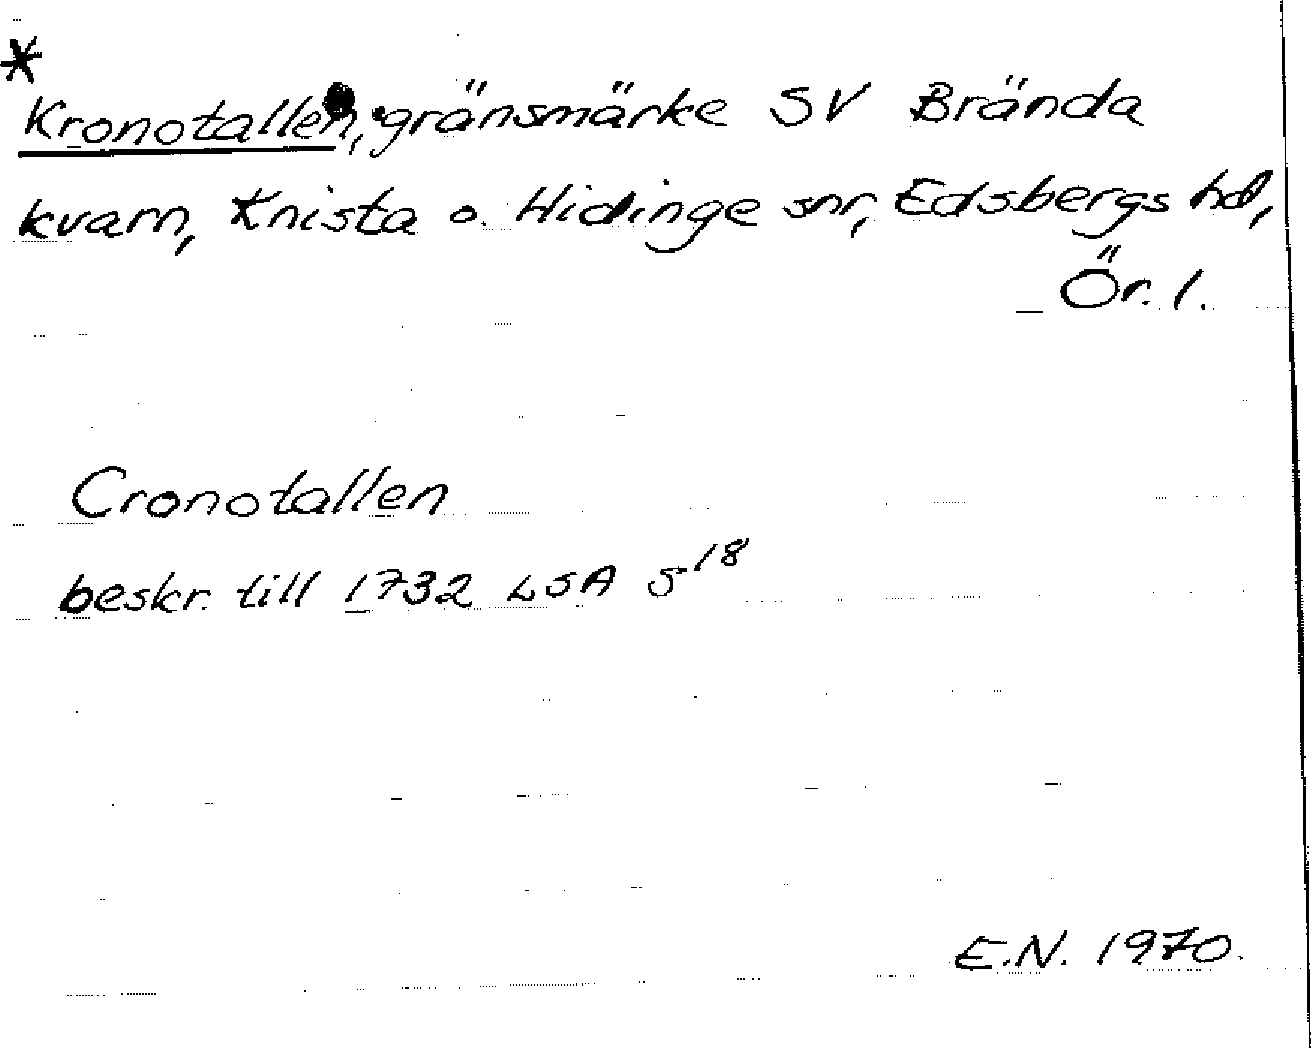 *
Kronotallen, gränsmärke SV Brända
kvarn, Knista o. Hidinge snr, Edsbergs hd,
Ör. l.
Cronotallen
beskr. till 1732 LSA S¹⁸
E.N. 1970.